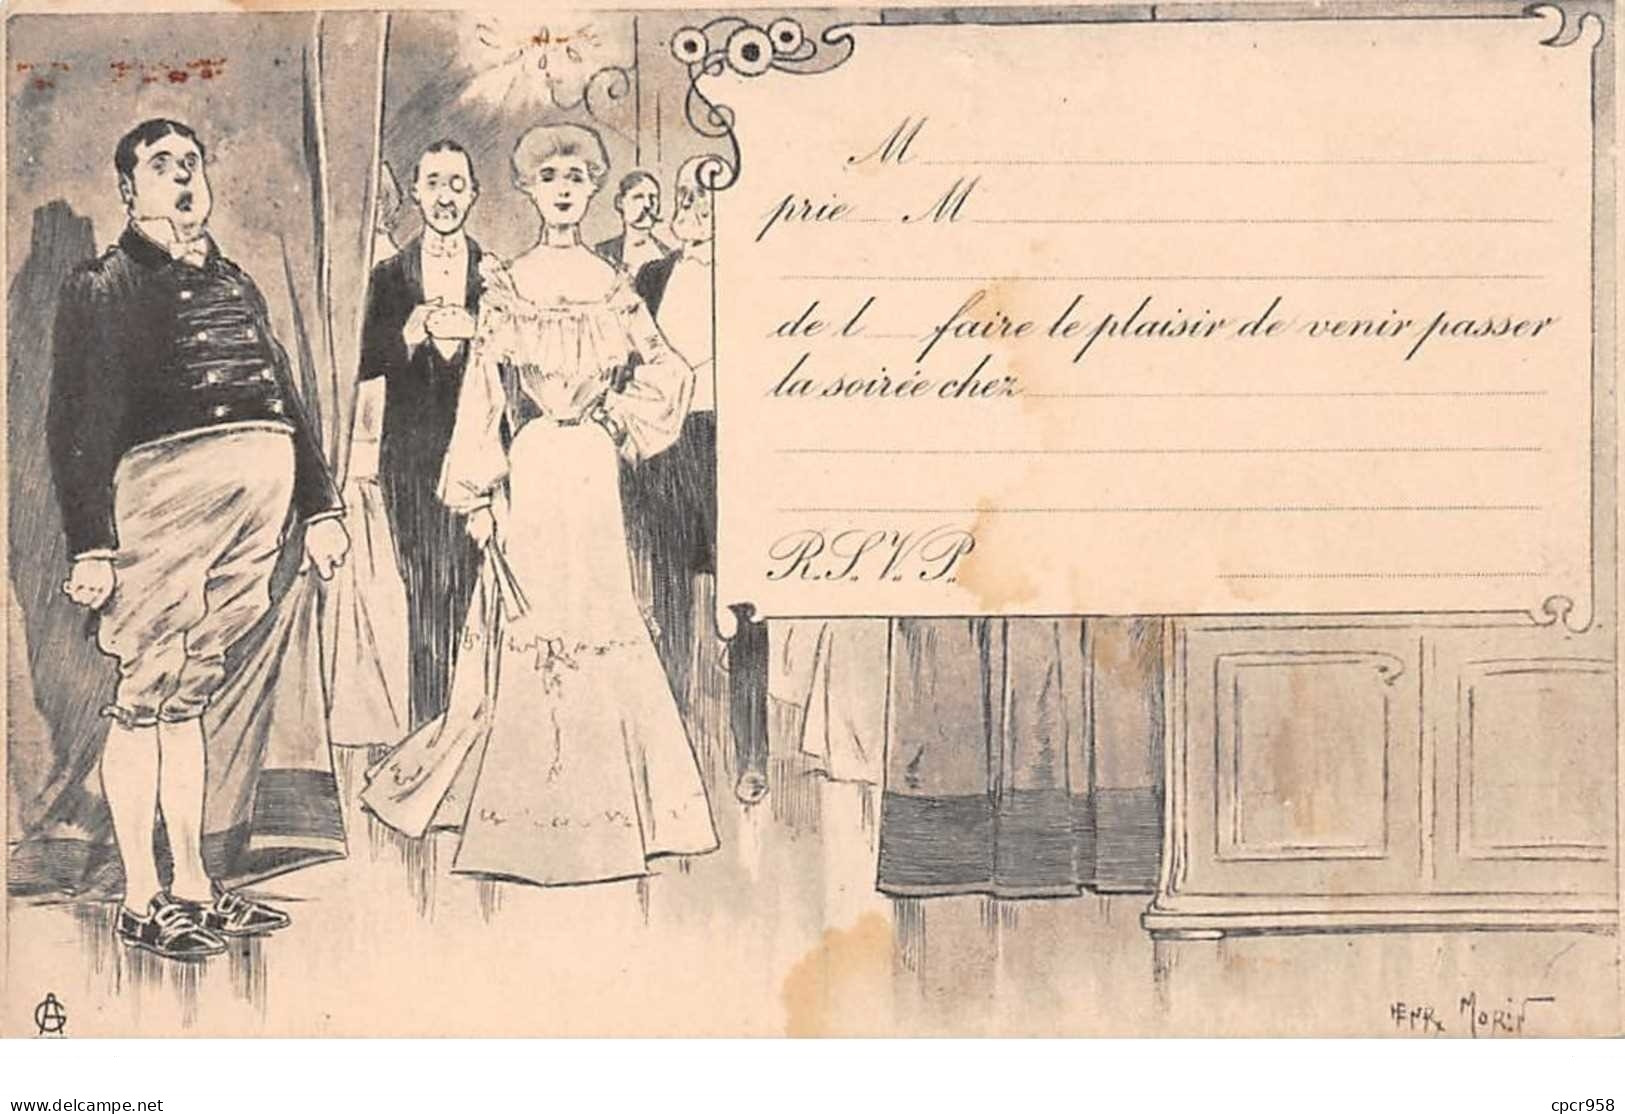 M
prie M
de l faire le plaisir de venir passer
la soirée chez
R.S.V.P.
AG
HENRY MORIN
delcampe.net
cpcr958